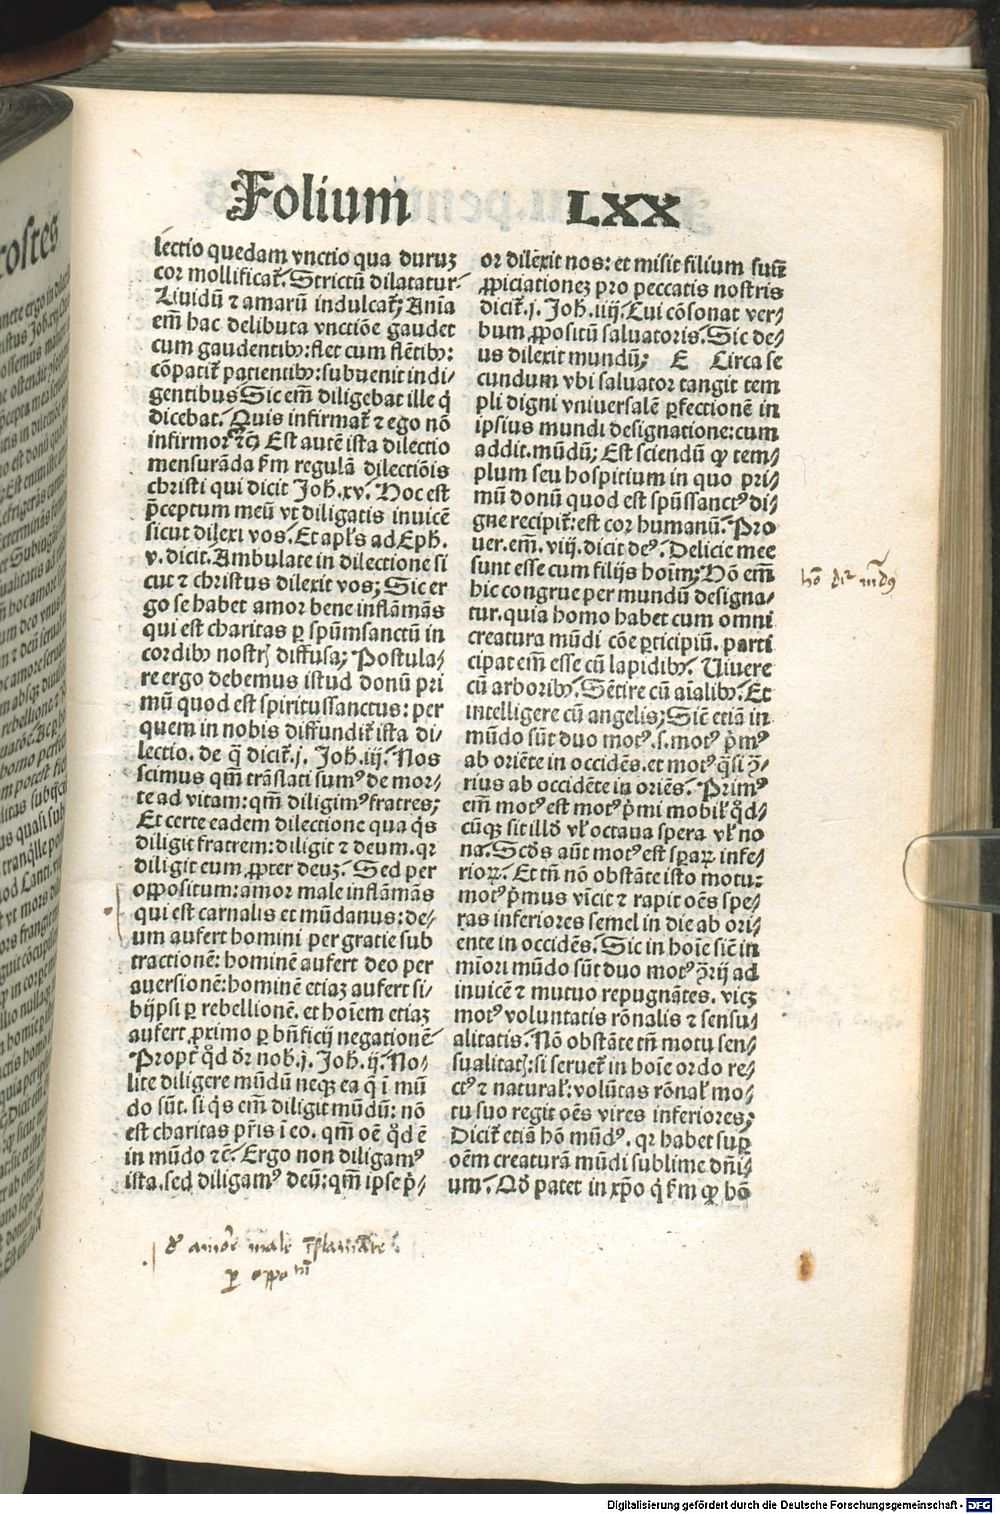 Folium LXX
lectio quedam vnctio qua duruꝫ
cor mollificat᷑. Strictū dilatatur
Liuidū ⁊ amarū indulcat᷑; Aīa
em̄ hac delibuta vnctiōe gaudet
cum gaudentibꝰ: flet cum flētibꝰ:
cōpatit᷑ patientibꝰ: subuenit indi⸗
gentibus Sic em̄ diligebat ille q̇
dicebat. Quis infirmat᷑ ⁊ ego nō
infirmor ⁊c̄ Est autē ista dilectio
mensurāda ẜm regulā dilectiōis
christi qui dicit Joh. xv. Hoc est
p̄ceptum meū vt diligatis inuicē
sicut dilexi vos. Et apl's ad Eph.
v. dicit. Ambulate in dilectione si
cut ⁊ christus dilexit vos; Sic er
go se habet amor bene inflāmās
qui est charitas ꝑ spūmsanctū in
cordibꝰ nostrꝭ diffusa; Postula⸗
re ergo debemus istud donū pri
mū quod est spiritussanctus: per
quem in nobis diffundit᷑ ista di⸗
lectio. de q̄ dicit᷑. j. Joh. iij. Nos
scimus qm̄ trāslati sumꝰ de mor⸗
te ad vitam: qm̄ diligimꝰ fratres;
Et certe eadem dilectione qua q̇s
diligit fratrem: diligit ⁊ deum. qꝛ
diligit eum ꝓpter deuꝫ. Sed per
oppositum: amor male inflāmās
qui est carnalis et mūdanus: de⸗
um aufert homini per gratie sub
tractionē: hominē aufert deo per
auersionē: hominē etiaꝫ aufert si⸗
bijpsi ꝑ rebellionē. et hoīem etiaꝫ
aufert ꝓximo ꝑ bn̄ficij negationē
Propt᷑ qd̓ dr̄ nob̄. j. Joh. ij. No⸗
lite diligere mūdū neqꝫ ea q̄ ī mū
do sūt. si q̇s em̄ diligit mūdū: nō
est charitas pr̄is ī eo. qm̄ oē qd̓ ē
in mūdo ⁊c̄. Ergo non diligamꝰ
ista. sed diligamꝰ deū: qm̄ ipse p̄⸗
or dilexit nos: et misit filium suū
ꝓpiciationeꝫ pro peccatis nostris
dicit᷑. j. Joh. iiij. Cui cōsonat ver⸗
bum ꝓpositū saluatoris. Sic de⸗
us dilexit mundū; E Circa se
cundum vbi saluator tangit tem
pli digni vniuersalē ꝑfectionē in
ipsius mundi designatione: cum
addit. mūdū; Est sciendū ꝙ tem⸗
plum seu hospitium in quo pri⸗
mū donū quod est spūssanctꝰ di⸗
gne recipit᷑: est cor humanū. Pro
uer. em̄. viij. dicit deꝰ. Delicie mee
sunt esse cum filijs hoīm; Hō em̄
hic congrue per mundū designa⸗
tur. quia homo habet cum omni
creatura mūdi cōe ꝑticipiū. parti
cipat em̄ esse cū lapidibꝰ. Viuere
cū arboribꝰ. Sētire cū aīalibꝰ. Et
intelligere cū angelis; Sic̄ etiā in
mūdo sūt duo motꝰ. s. motꝰ p̄mꝰ
ab oriēte in occidēs. et motꝰ q̄si ꝯ̄⸗
rius ab occidēte in oriēs. Primꝰ
em̄ motꝰ est motꝰ p̄mi mobil᷑ qd̓⸗
cūqꝫ sit illd̓ vl᷑ octaua spera vl᷑ no
na. Scd̓s aūt motꝰ est sꝑaꝝ infe⸗
rioꝝ. Et tn̄ nō obstāte isto motu:
motꝰ p̄mus vīcit ⁊ rapit oēs spe⸗
ras inferiores semel in die ab ori⸗
ente in occidēs. Sic in hoīe sic̄ in
mīori mūdo sūt duo motꝰ ꝯ̄rij ad
inuicē ⁊ mutuo repugnātes. vicꝫ
motꝰ voluntatis rōnalis ⁊ sensu⸗
alitatis. Nō obstāte tn̄ motu sen⸗
sualitatꝭ: si seruet᷑ in hoīe ordo re⸗
ctꝰ ⁊ natural᷑: volūtas rōnal᷑ mo⸗
tu suo regit oēs vires inferiores;
Dicit᷑ etiā hō mūdꝰ. qꝛ habet suꝑ
oēm creaturā mūdi sublime dn̄i⸗
um. Qd̓ patet in xp̄o q̇ ẜm ꝙ hō
hō dr̄ mūdꝰ
amore male īflamāte
ꝑ oppoᵐ
Digitalisierung gefördert durch die Deutsche Forschungsgemeinschaft - DFG